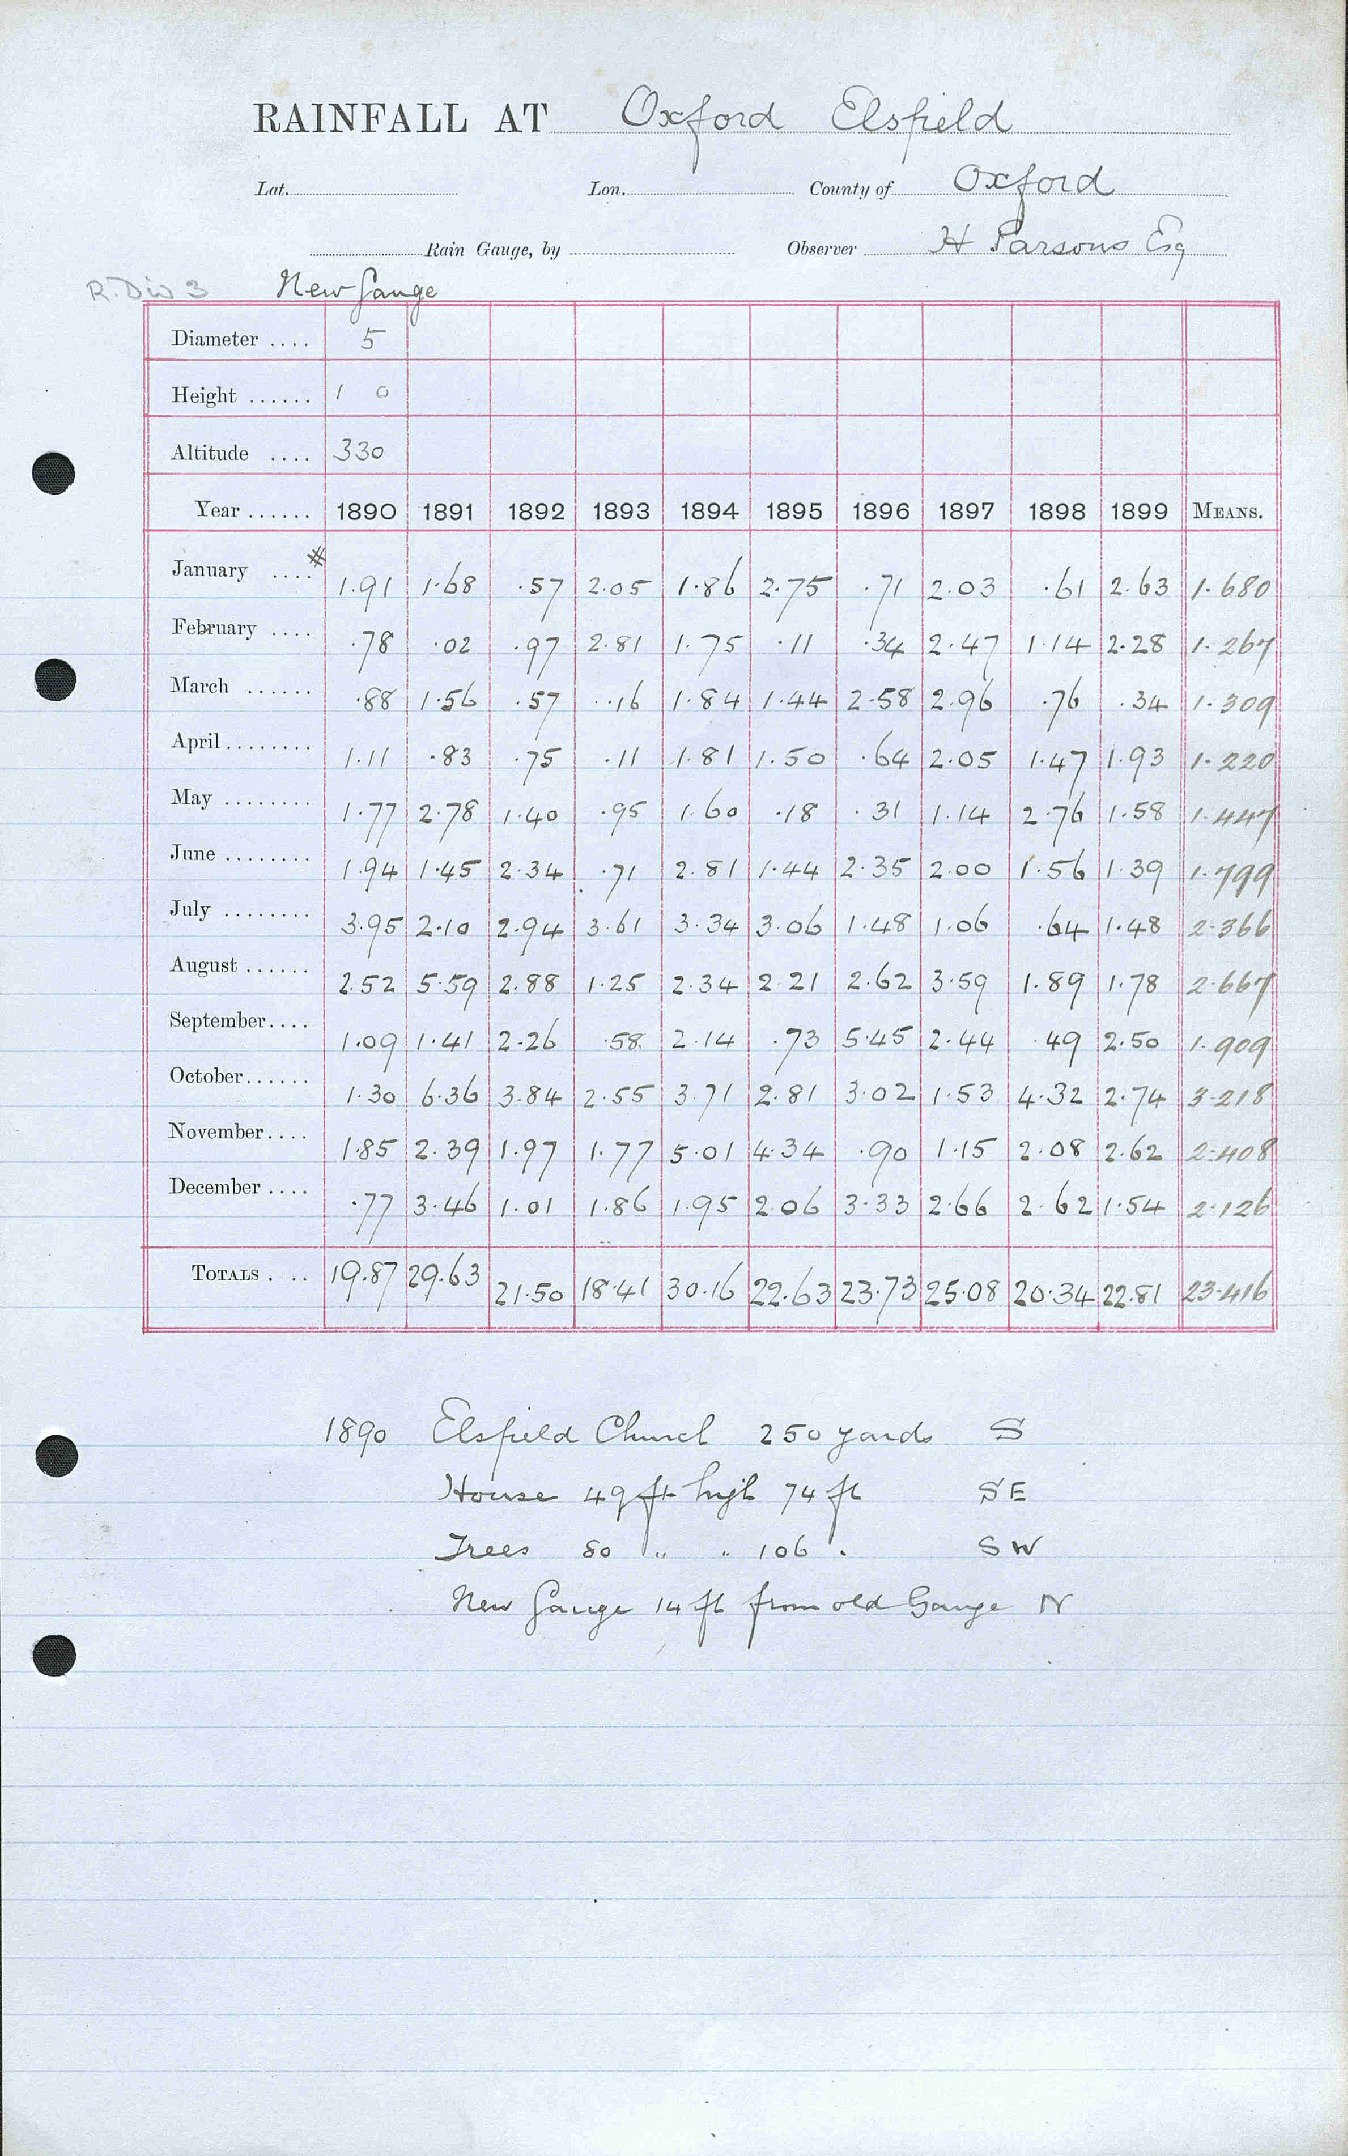 RAINFALL AT Oxford Elsfield
Lat. Lon. County of Oxford
Rain Gauge, by Observer H Parsons Esq
R. Div 3 New Gauge
Diameter .... 5
Height ...... 1 0
Altitude .... 330
Year ...... 1890 1891 1892 1893 1894 1895 1896 1897 1898 1899 MEANS.
January .... # 1.91 1.68 .57 2.05 1.86 2.75 .71 2.03 .61 2.63 1.680
February .... .78 .02 .97 2.81 1.75 .11 .34 2.47 1.14 2.28 1.267
March ...... .88 1.56 .57 .16 1.84 1.44 2.58 2.96 .76 .34 1.309
April ........ 1.11 .83 .75 .11 1.81 1.50 .64 2.05 1.47 1.93 1.220
May ........ 1.77 2.78 1.40 .95 1.60 .18 .31 1.14 2.76 1.58 1.447
June ........ 1.94 1.45 2.34 .71 2.81 1.44 2.35 2.00 1.56 1.39 1.799
July ........ 3.95 2.10 2.94 3.61 3.34 3.06 1.48 1.06 .64 1.48 2.366
August ...... 2.52 5.59 2.88 1.25 2.34 2.21 2.62 3.59 1.89 1.78 2.667
September.... 1.09 1.41 2.26 .58 2.14 .73 5.45 2.44 .49 2.50 1.909
October...... 1.30 6.36 3.84 2.55 3.71 2.81 3.02 1.53 4.32 2.74 3.218
November.... 1.85 2.39 1.97 1.77 5.01 4.34 .90 1.15 2.08 2.62 2.408
December .... .77 3.46 1.01 1.86 1.95 2.06 3.33 2.66 2.62 1.54 2.126
TOTALS . .. 19.87 29.63 21.50 18.41 30.16 22.63 23.73 25.08 20.34 22.81 23.416
1890 Elsfield Church 250 yards S
House 49 ft high 74 ft SE
Trees 80 " " 106 " SW
New Gauge 14 ft from old Gauge N